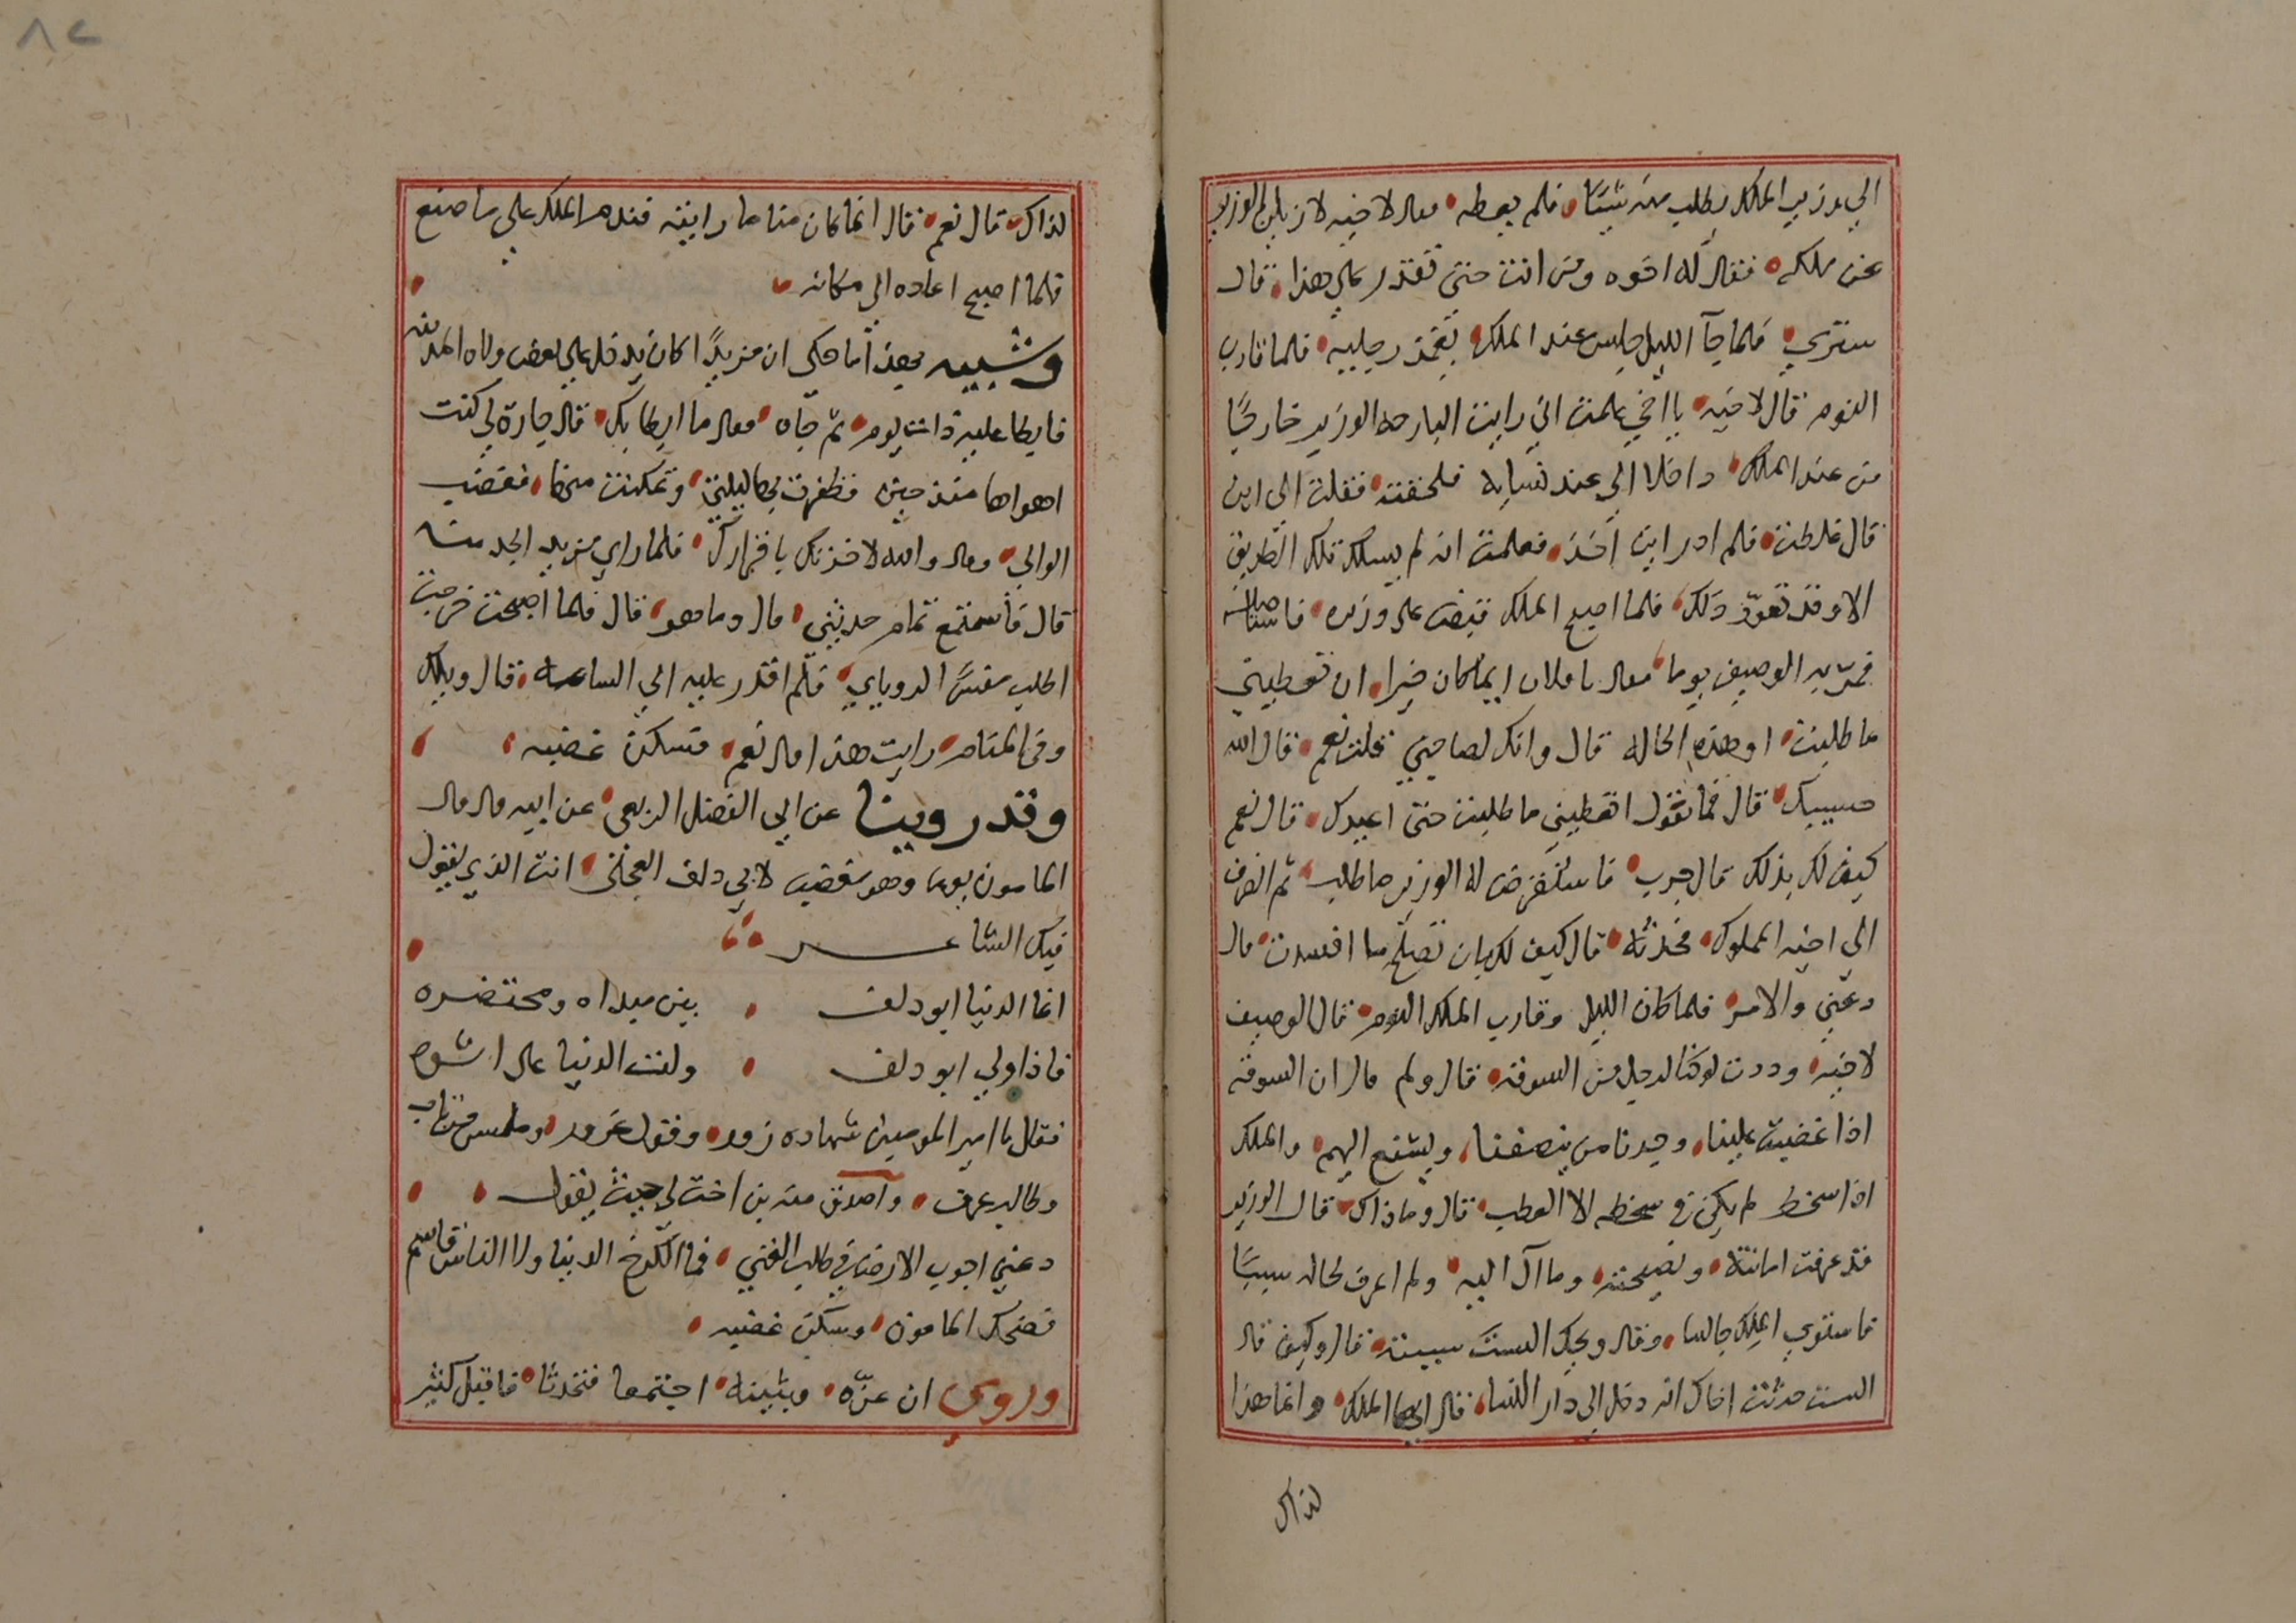 الي وزير الملك يطلب منه شيئا فلم يعطه فقال لاخيه لازيلن الوزير
عن ملكه فقال له اخوه ومن انت حتى تقدر على هذا قال
ستري فلما جآ الليل جلس عند الملك يغمز رجليه فلما قارب
النوم قال لاخيه يا اخي علمت اني رايت البارحه الوزير خارجا
من عند الملك داخلا الي عند نسايه فلحقته فقلت الى اين
قال غلطت فلم ادر اين اخذ فعلمت انه لم يسلك تلك الطريق
الا وقد تعود ذلك فلما اصبح الملك قبض على وزيره
فمر به الوصيف يوما فقال يا فلان ايما كان خيرا ان تعطيني
ما طلبت او هذه الحاله قال وانك لصاحبي قلت نعم قال الله
حسيبك قال فما تقول اتعطيني ما طلبت حتى اعيدك قال نعم
كيف لك بذلك قال جرب فاستقرض له الوزير ما طلب ثم انصرف
الي اخيه المملوك فحدثه قال كيف لك بان تصلح ما افسدت قال
دعني والامر فلما كان الليل وقارب الملك النوم قال الوصيف
لاخيه وددت لو كنا لرجل من السوقه قال ولم قال ان السوقه
اذا غضبت علينا وجدنا من ينصفنا ويشفع اليهم والملك
اذا سخط لم يكن في سخطه الا العطب قال وما ذاك قال الوزير
قد عرفت امانته ونصيحته وما آل اليه ولم اعرف لحاله سببا
فاستوي الملك جالسا وقال ويحك الست سببته قال وكيف قال
الست حدثت اخاك انه دخل الي دار النسا قال ايها الملك وانما هذا
لذاك
٨٢
لذاك قال نعم قال انما كان مناما رايته فندم الملك على ما صنع
فلما اصبح اعاده الي مكانه
وشبيه بهذا ما حكى ان مزبدا كان يدخل علي بعض ولاه المدينه
فابطا عليه ذات يوم ثم جاه فقال ما ابطا بك قال جارة لي كنت
اهواها منذ حين فظفرت بها ليلتي وتمكنت منها فغضب
الوالي وقال والله لاخذنك باقرارك فلما راي مزبد الجد منه
قال فاستمع تمام حديثي قال وما هو قال فلما اصبحت خرجت
اطلب مفسرا لروياي فلم اقدر عليه الي الساعه قال ويلك
وفي المنام رايت هذا قال نعم فسكن غضبه
وقد روينا عن ابي الفضل الربعي عن ابيه قال قال
المامون يوما وهو مغضب لابي دلف العجلي انت الذي يقول
فيك الشاعر
انما الدنيا ابو دلف بين مبداه ومحتضره
فاذا ولي ابو دلف ولت الدنيا على اثره
فقال يا امير المومنين شهاده زور وقول غرور وملمس من ثاب
وطالب عرف واصدق منه بن اخت لي حيث يقول
دعيني اجوب الارض في طلب الغني فما الكرخ الدنيا ولا الناس قاسم
فضحك المامون وسكن غضبه
وروي ان عزه وبثينه اجتمعا فتحدثا فاقبل كثير